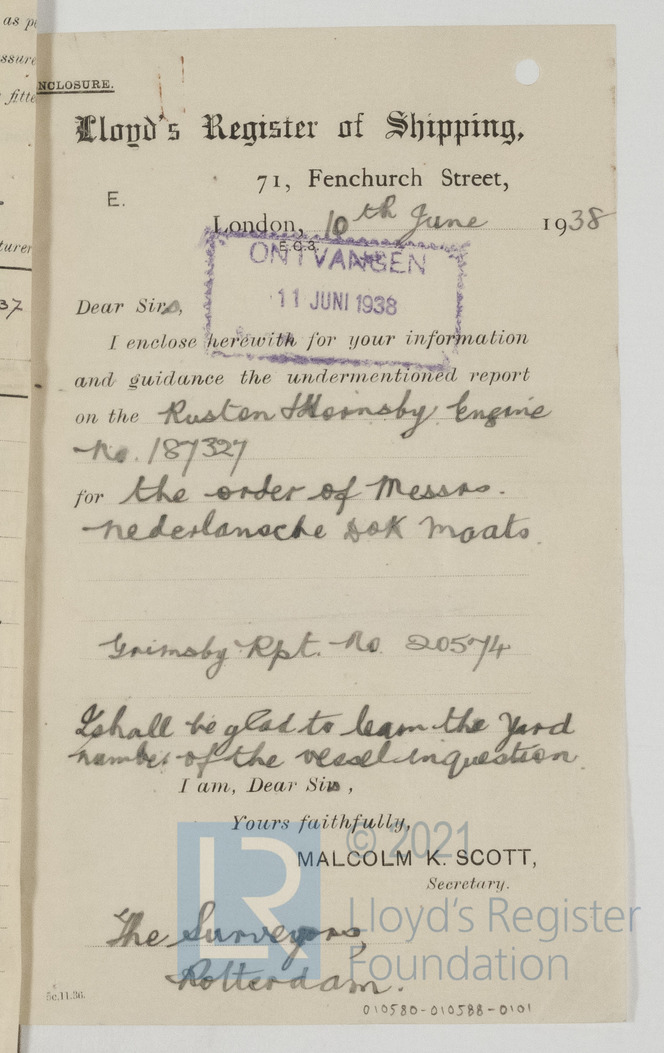 as p
ssure
fitte
turer
37
NCLOSURE.
Lloyd's Register of Shipping,
71, Fenchurch Street,
E.
London, 10th June 1938
E.C.3.
ONTVANGEN
11 JUNI 1938
Dear Sirs,
I enclose herewith for your information
and guidance the undermentioned report
on the Ruston & Hornsby Engine
No. 187327
for the order of Messrs.
Nederlansche Dok Maats.
Grimsby Rpt. No. 20574
I shall be glad to learn the Yard
number of the vessel in question
I am, Dear Sirs,
Yours faithfully,
© 2021
MALCOLM K. SCOTT,
Secretary.
LR
Lloyd's Register
Foundation
The Surveyors,
Rotterdam.
5c.11.36.
010580-010588-0101